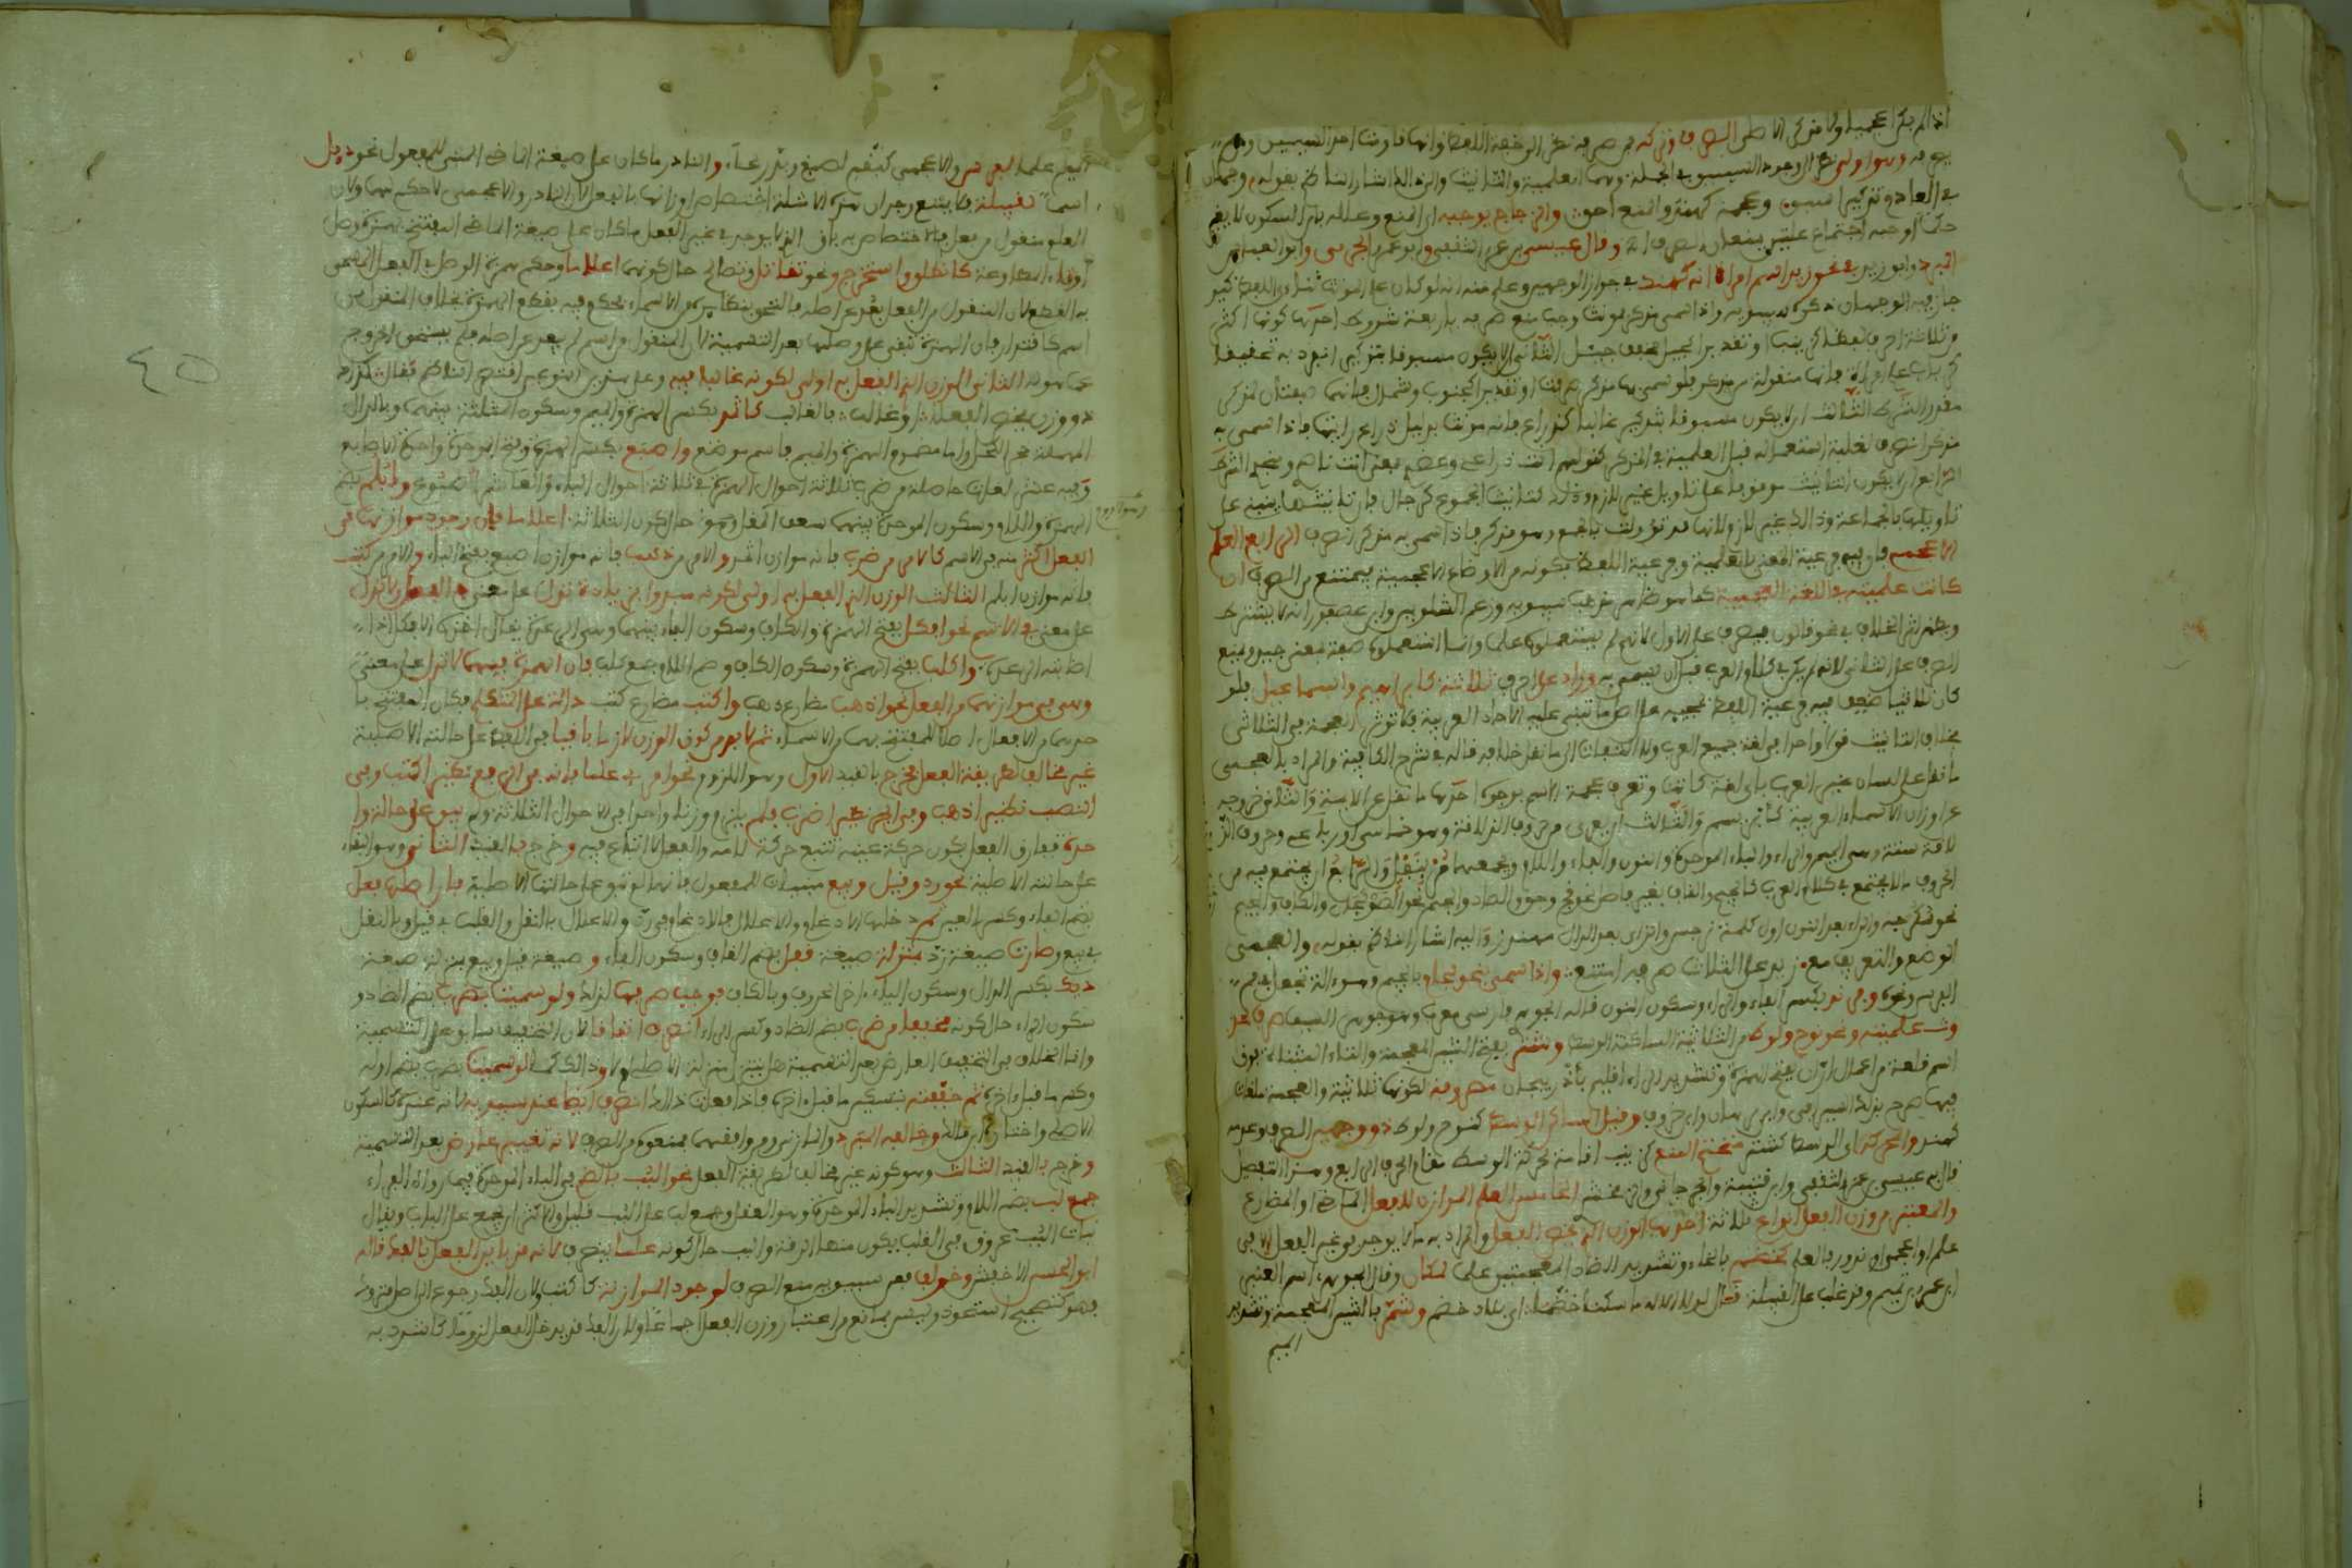 اذا لم يكن اعجميا ولا مذكر الاصل الصرف وتركه فمن صرفه نظر الى خفة اللفظ وانها قاومت احد السببين ومن لم
يصرفه وهو اولى نظر الى وجود السببين في الجملة وهما العلمية والتانيث والى ذلك اشار الناظم بقوله وجهان
في العادم تذكيرا سبق وعجمة كهند والمنع احق والزجاج يوجبه اي المنع وعلله بان السكون لا يغير
حكما اوجبه اجتماع علتين يمنعان الصرف وقال عيسى بن عمر الثقفي وابو عمر الجرمي وابو العباس
المبرد وابو زيد في نحو زيد اسم امراة انه كهند في جواز الوجهين وعلم منه انه لو كان على المونث ثنائي اللفظ كيد
جاز فيه الوجهان ذكره سيبويه واذا سمي مذكر بمونث وجب منع صرفه باربعة شروط احدها كونها اكثر
من ثلاثة احرف لفظا كزينب او تقديرا كجيل مخفف جيئل الثاني الا يكون مسبوقا بتذكير انفرد به تحقيقا
كرباب علم امراة فانها منقولة من مذكر فلو سمي بها مذكر صرفت او تقديرا كجنوب وشمال فانهما صفتان لمذكر
مقدر الشرط الثالث ان لا يكون مسبوقا بتذكير غالبا كذراع فانه مونث بدليل ذراع رايتها فاذا سمي به
مذكر انصرف لغلبة استعماله قبل العلمية في المذكر كقولهم انت ذراعي وعضدي بمعنى انت ناصري ومنجدي الشرط
الرابع ان لا يكون التانيث موقوفا على تاويل غير لازم وذلك كتانيث الجموع كرجال فان تانيثها ينبني على
تاويلها بالجماعة وذلك غير لازم لانها قد تؤول بالجمع وهو مذكر فاذا سمي به مذكر انصرف الرابع العلم
الاعجمي فان فيه فرعية المعنى بالعلمية وفرعية اللفظ بكونه من الاوضاع الاعجمية فيمتنع من الصرف ان
كانت علميته في اللغة العجمية كما هو ظاهر مذهب سيبويه وزعم الشلوبين وابن عصفور انه لا يشترط
ويظهر اثر الخلاف في نحو قالون فيصرف على الاول لانهم لم يستعملوه علما وانما استعملوه صفة بمعنى جيد ويمنع
الصرف على الثاني لانه لم يكن في كلام العرب قبل ان يسمى به وزاد على احرف ثلاثة كابراهيم واسماعيل فلو
كان ثلاثيا ضعف فيه فرعية اللفظ لمجيئه على اصل ما تبنى عليه الاحاد العربية فلا توثر العجمة في الثلاثي
بخلاف التانيث قولا واحدا في لغة جميع العرب ولا التفات الى ما نقل خلافه قاله في شرح الكافية والمراد بالعجمي
ما نقل عن لسان غير العرب باي لغة كانت وتعرف عجمة الاسم بوجوه احدها ما نقل عن الايمة والثاني خروجه
عن اوزان الاسماء العربية كابريسم والثالث ان يعرى من حروف الذلاقة وهو خماسي او رباعي وحروف الذ
لاقة ستة وهي الميم والراء والباء الموحدة والنون والفاء واللام ويجمعها مر بنفل والرابع ان يجتمع فيه من
الحروف ما لا يجتمع في كلام العرب كالجيم والقاف بغير فاصل نحو قج وجق والصاد والجيم نحو الصولجان والكاف والجيم
نحو اسكرجة والراء بعد النون اول كلمة نرجس والزاي بعد الدال مهندز واليه اشار الناظم بقوله والعجمي
الوضع والتعريف مع زيد على الثلاث صرفه امتنع واذا سمي بنحو لجام بالجيم وهو الة تجعل في فم
الفرس ونحوه وفرند بكسر الفاء والراء وسكون النون قاله الجوهري فارسي معرب وهو جوهر السيف صرف لحد
وث علميته ونحو نوح ولوط من الثلاثية الساكنة الوسط وشتر بفتح الشين المعجمة والتاء المثناة فوق
اسم قلعة من اعمال اران بفتح الهمزة وتشديد الراء اقليم باذربيجان مصروفة لكونها ثلاثية والعجمة ملغاة
فيها صرح بذلك السيرافي وابن برهان وابن خروف وقيل الساكن الوسط كنوح ولوط ذو وجهين الصرف وعدمه
كهند والمحركه اي الوسط كشتر متحتم المنع كزينب اقامة لحركة الوسط مقام الحرف الرابع وهذا التفصيل
قال به عيسى بن عمر الثقفي وابن قتيبة والجرجاني والزمخشري الخامس العلم الموازن للفعل الماضي او المضارع
والمعتبر من وزن الفعل انواع ثلاثة احدها الوزن الذي يخص الفعل والمراد به ما لا يوجد في غير الفعل الا في
علم او اعجمي او ندور فالعلم كخضم بالخاء وتشديد الضاد المعجمتين علما لمكان وقال الجوهري اسم العنبر
ابن عمرو بن تميم وقد غلب على القبيلة قال لولا الاله ما سكنا خضما اي بلاد خضم وشمر بالشين المعجمة وتشديد
الميم
الميم علما لفرس والاعجمي كبقم لصبغ وبذر علما والنادر ما كان على صيغة الماضي المبني للمفعول نحو دئل
اسما لقبيلة فلا يمنع وجدان هذه الامثلة اختصاص اوزانها بالفعل لان النادر والاعجمي لا حكم لهما ولان
العلم منقول من فعل فالاختصاص فيه باق الذي لا يوجد في غير الفعل ما كان على صيغة الماضي المفتتح بهمزة وصل
او تاء المطاوعة كانطلق واستخرج ونحو تقاتل وتصالح حال كونهما اعلاما وحكم همزة الوصل في الفعل المسمى
به القطع لان المنقول من الفعل بعد عن اصله فالتحق بنظائره من الاسماء فحكم فيه بقطع الهمزة بخلاف المنقول من
اسم كاقتدار فان الهمزة تبقى على وصلها بعد التسمية لان المنقول من اسم لم يبعد عن اصله فلم يستحق الخروج
عما هو له الثاني الوزن الذي الفعل به اولى لكونه غالبا فيه وعلى هذين النوعين اقتصر الناظم فقال كذاك
ذو وزن يخص الفعلا او غالب فالغالب كاثمد بكسر الهمزة والميم وسكون المثلثة بينهما وبالدال
المهملة حجر الكحل واما مضموم الهمزة والميم فاسم موضع واصبع بكسر الهمزة وفتح الموحدة واحدة الاصابع
وفيه عشر لغات حاصلة من ضرب ثلاثة احوال الهمزة في ثلاثة احوال الباء والعاشر اصبوع وابلم بضم
الهمزة واللام وسكون الموحدة بينهما سعف المقل وهو حال كون الثلاثة اعلاما فان وجود موازنها في
الفعل اكثر منه في الاسم كالامر من ضرب فانه موازن اثمد والامر من ذهب فانه موازن اصبع بفتح الباء والامر من كتب
فانه موازن ابلم الثالث الوزن الذي الفعل به اولى لكونه مبدوا بزيادة تدل على معنى في الفعل ولا تدل
على معنى في الاسم نحو افكل بفتح الهمزة والكاف وسكون الفاء بينهما وهي الرعدة يقال اخذه الافكل اذا
اصابته الرعدة واكلب بفتح الهمزة وسكون الكاف وضم اللام جمع كلب فان الهمزة فيهما لا تدل على معنى
وهي في موازنهما من الفعل نحو اذهب مضارع ذهب واكتب مضارع كتب دالة على المتكلم فكان المفتتح با
حدهما من الافعال اصلا للمفتتح بهما من الاسماء ثم لا بد من كون الوزن لازما باقيا في اللفظ على حالته الاصلية
غير مخالف لطريقة الفعل فخرج بالقيد الاول وهو اللزوم نحو امرئ علما فانه في الرفع نظير اكتب وفي
النصب نظير اذهب وفي الجر نظير اضرب فلم يلزم وزنا واحدا في الاحوال الثلاثة ولم يبق على حالة وا
حدة ففارق الفعل بكون حركة عينه تتبع حركة لامه والفعل لا اتباع فيه وخرج بالقيد الثاني وهو البقاء
على حالته الاصلية نحو رد وقيل وبيع مبنيات للمفعول فانها لم تبق على حالتها الاصلية فان اصلها فعل
بضم الفاء وكسر العين ثم دخلها الادغام والاعلال فالادغام في رد والاعلال بالنقل والقلب في قيل وبالنقل
في بيع وصارت صيغة رد بمنزلة صيغة قفل بضم القاف وسكون الفاء وصيغة قيل وبيع بمنزلة صيغة
ديك بكسر الدال وسكون الياء اخر الحروف وبالكاف فوجب صرفها لذلك ولو سميت بضرب بضم الضاد و
سكون الراء حال كونه مخففا من ضرب بضم الضاد وكسر الراء انصرف اتفاقا لان التخفيف سابق على التسمية
وانما الخلاف في التخفيف العارض بعد التسمية هل ينزل منزلة الاصلي ام لا وذلك كما لو سميت بضرب بضم اوله
وكسر ما قبل اخره ثم خففته بتسكين ما قبل اخره فاذا فعلت ذلك انصرف ايضا عند سيبويه لانه عنده كالسكون
الاصلي واختاره ابن مالك وخالفه المبرد والمازني ومن وافقهما فمنعوه من الصرف لانه تغيير عارض بعد التسمية
وخرج بالقيد الثالث وهو كونه غير مخالف لطريقة الفعل نحو البب بالضم في الباء الموحدة فيما رواه الفراء
جمع لب بضم اللام وتشديد الباء الموحدة وهو العقل وجمع لب على البب قليل والاكثر ان يجمع على الباب ويقال
بنات البب عروق في القلب يكون منها الرقة والبب حال كونه علما ينصرف لانه قد باين الفعل بالفك قاله
ابو الحسن الاخفش وخولف فعن سيبويه منع الصرف لوجود الموازنة كاكتب ولان الفك رجوع الى اصل متروك
فهو كتصحيح استحوذ وليس بمانع من اعتبار وزن الفعل اجماعا ولان الفك قد يدخل الفعل لزوما كاشدد به